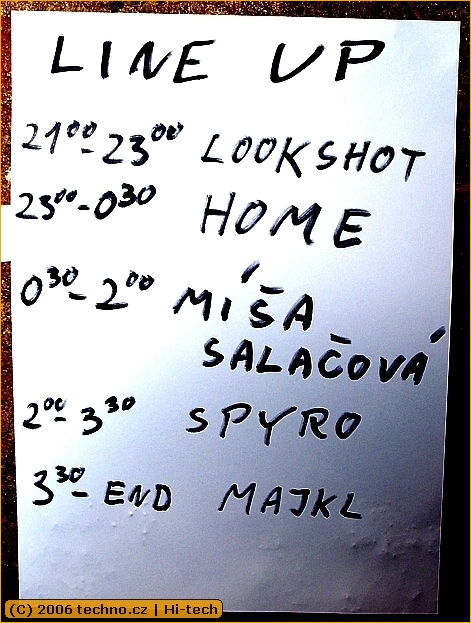 LINE UP
21⁰⁰-23⁰⁰ LOOKSHOT
23⁰⁰-0³⁰ HOME
0³⁰-2⁰⁰ MÍŠA
SALAČOVÁ
2⁰⁰-3³⁰ SPYRO
3³⁰-END MAJKL
(C) 2006 techno.cz | Hi-tech